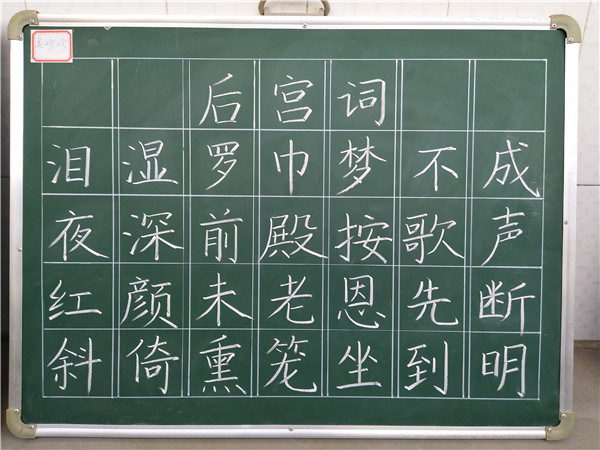 后宫词
泪湿罗巾梦不成
夜深前殿按歌声
红颜未老恩先断
斜倚熏笼坐到明